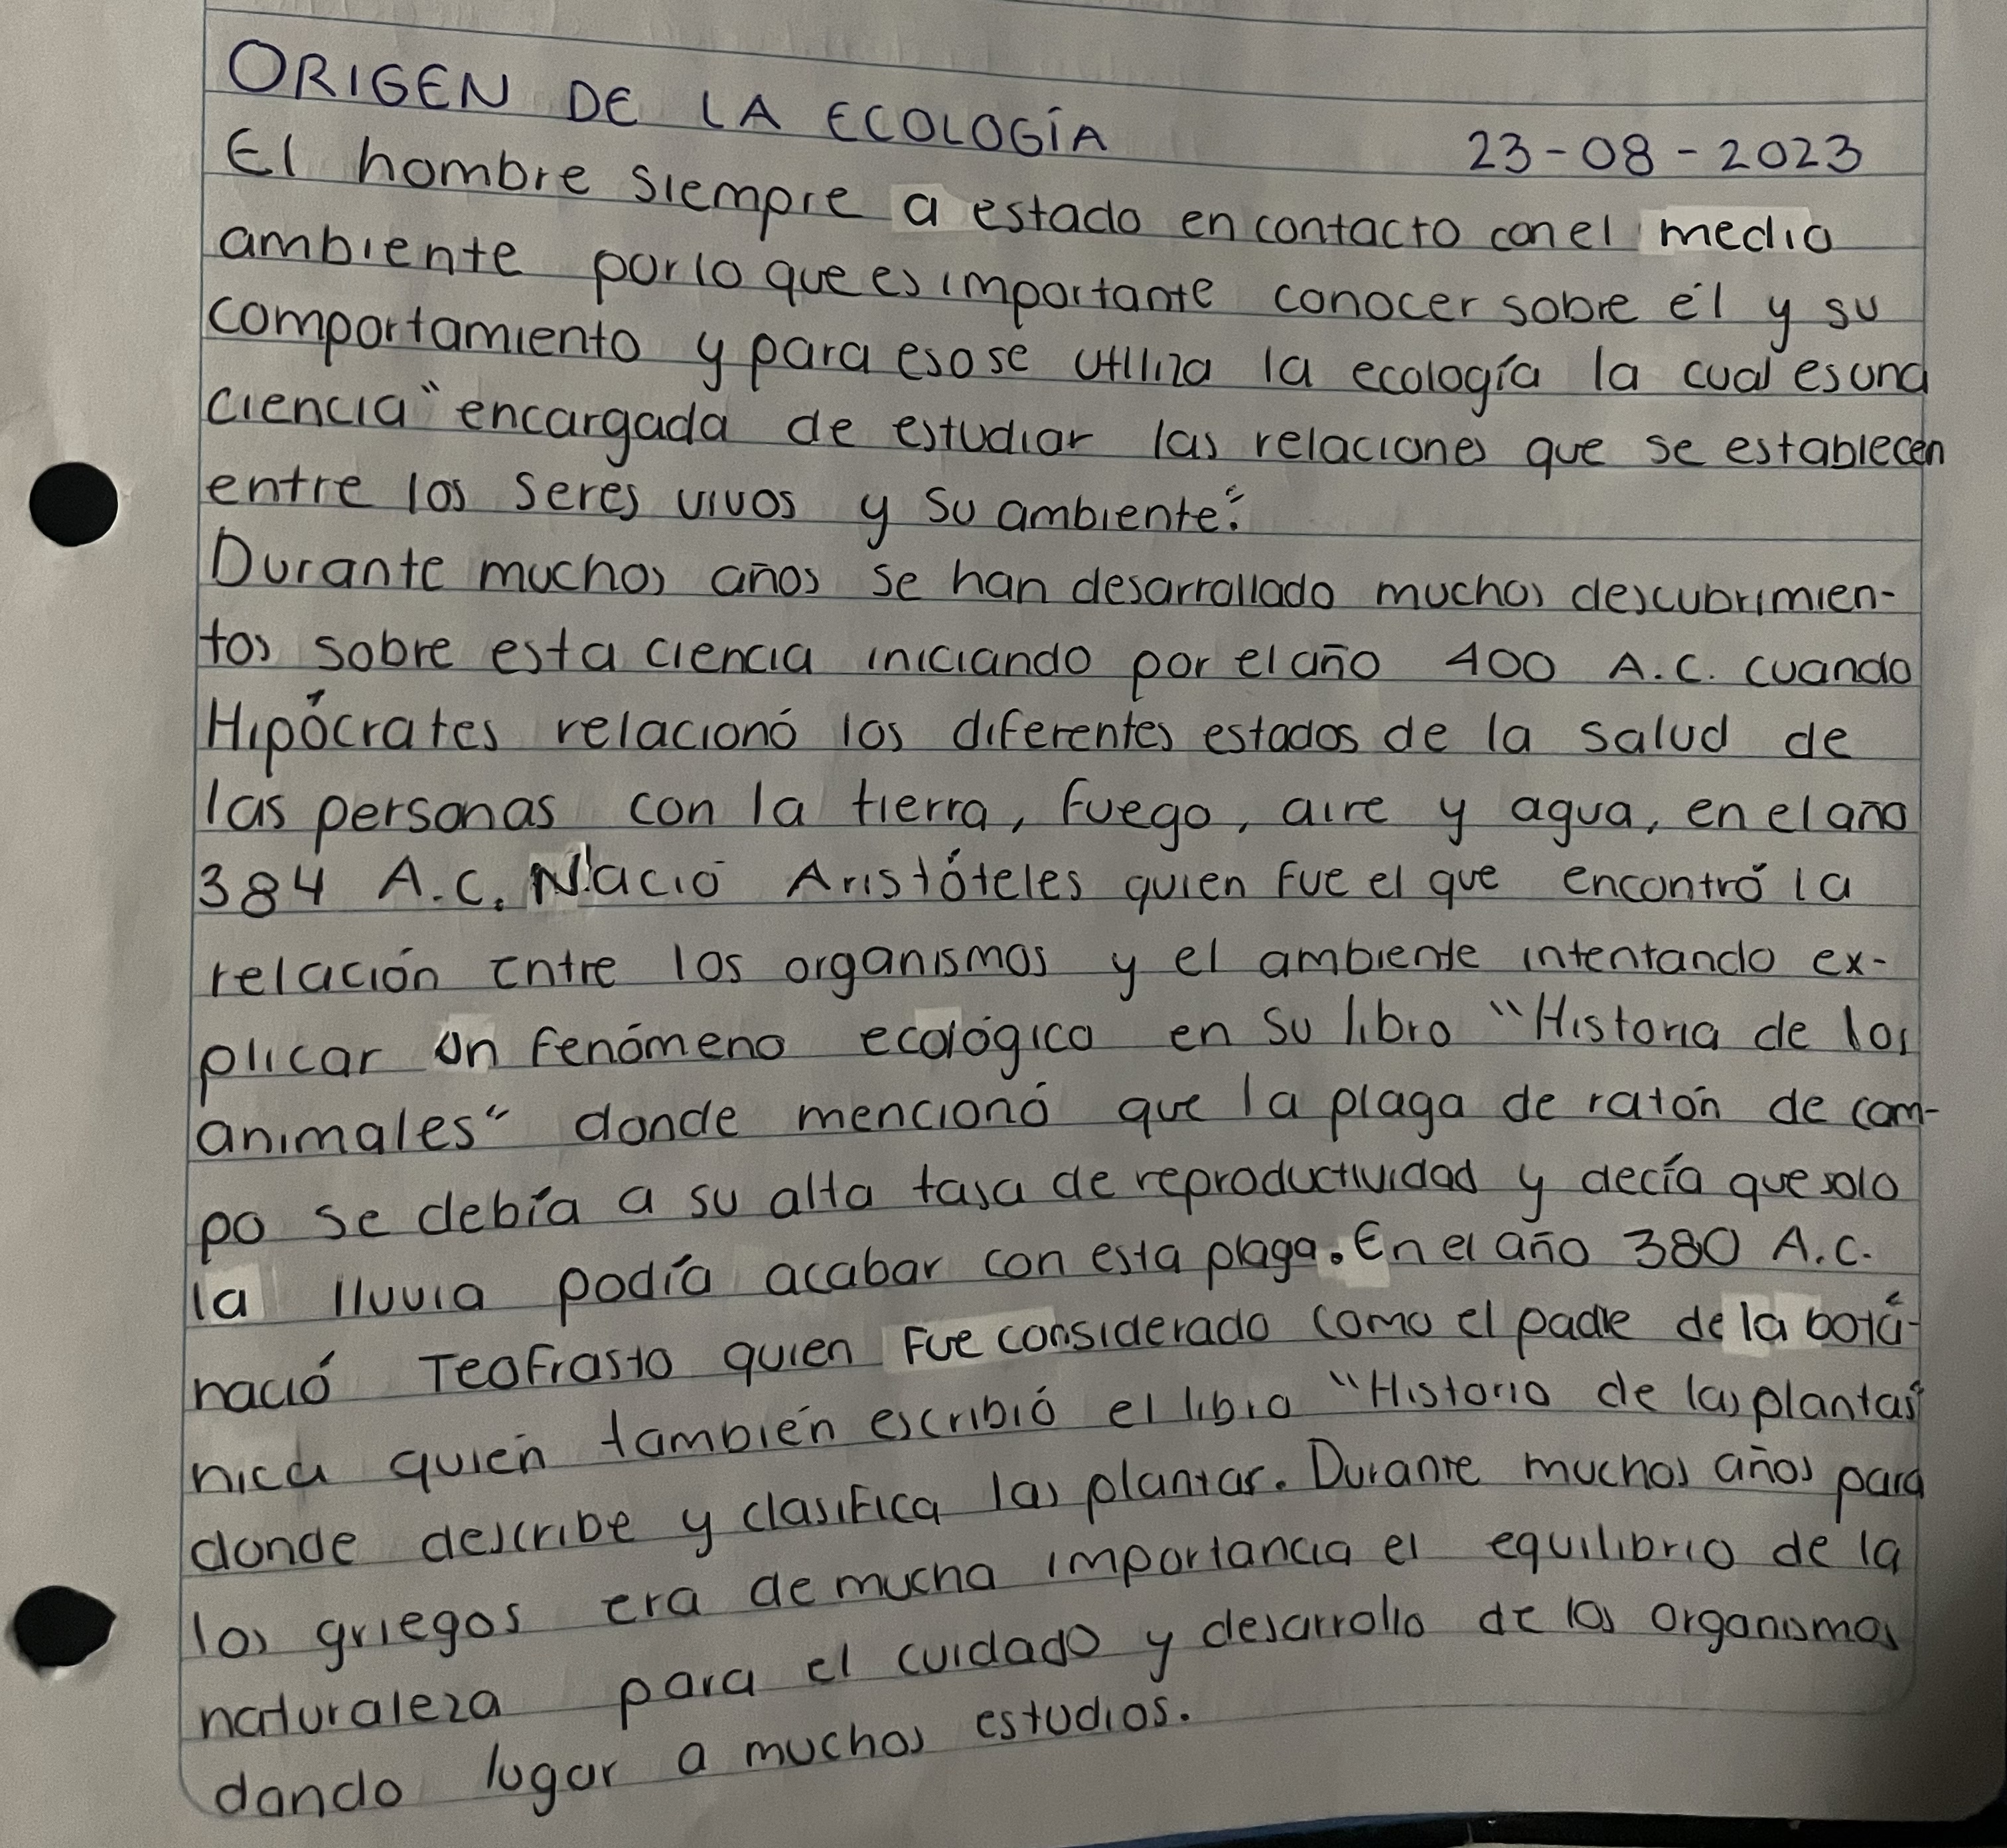 ORIGEN DE LA ECOLOGÍA
23-08-2023
El hombre siempre a estado en contacto con el medio
ambiente por lo que es importante conocer sobre él y su
comportamiento y para eso se utiliza la ecología la cual es una
ciencia "encargada de estudiar las relaciones que se establecen
entre los seres vivos y su ambiente".
Durante muchos años se han desarrollado muchos descubrimien-
tos sobre esta ciencia iniciando por el año 400 A.C. cuando
Hipócrates relacionó los diferentes estados de la salud de
las personas con la tierra, fuego, aire y agua, en el año
384 A.C. Nació Aristóteles quien fue el que encontró la
relación entre los organismos y el ambiente intentando ex-
plicar un fenómeno ecológico en su libro "Historia de los
animales" donde mencionó que la plaga de ratón de cam-
po se debía a su alta tasa de reproductividad y decía que solo
la lluvia podía acabar con esta plaga. En el año 380 A.C.
nació Teofrasto quien fue considerado como el padre de la botá-
nica quien también escribió el libro "Historia de las plantas"
donde describe y clasifica las plantas. Durante muchos años para
los griegos era de mucha importancia el equilibrio de la
naturaleza para el cuidado y desarrollo de los organismos
dando lugar a muchos estudios.